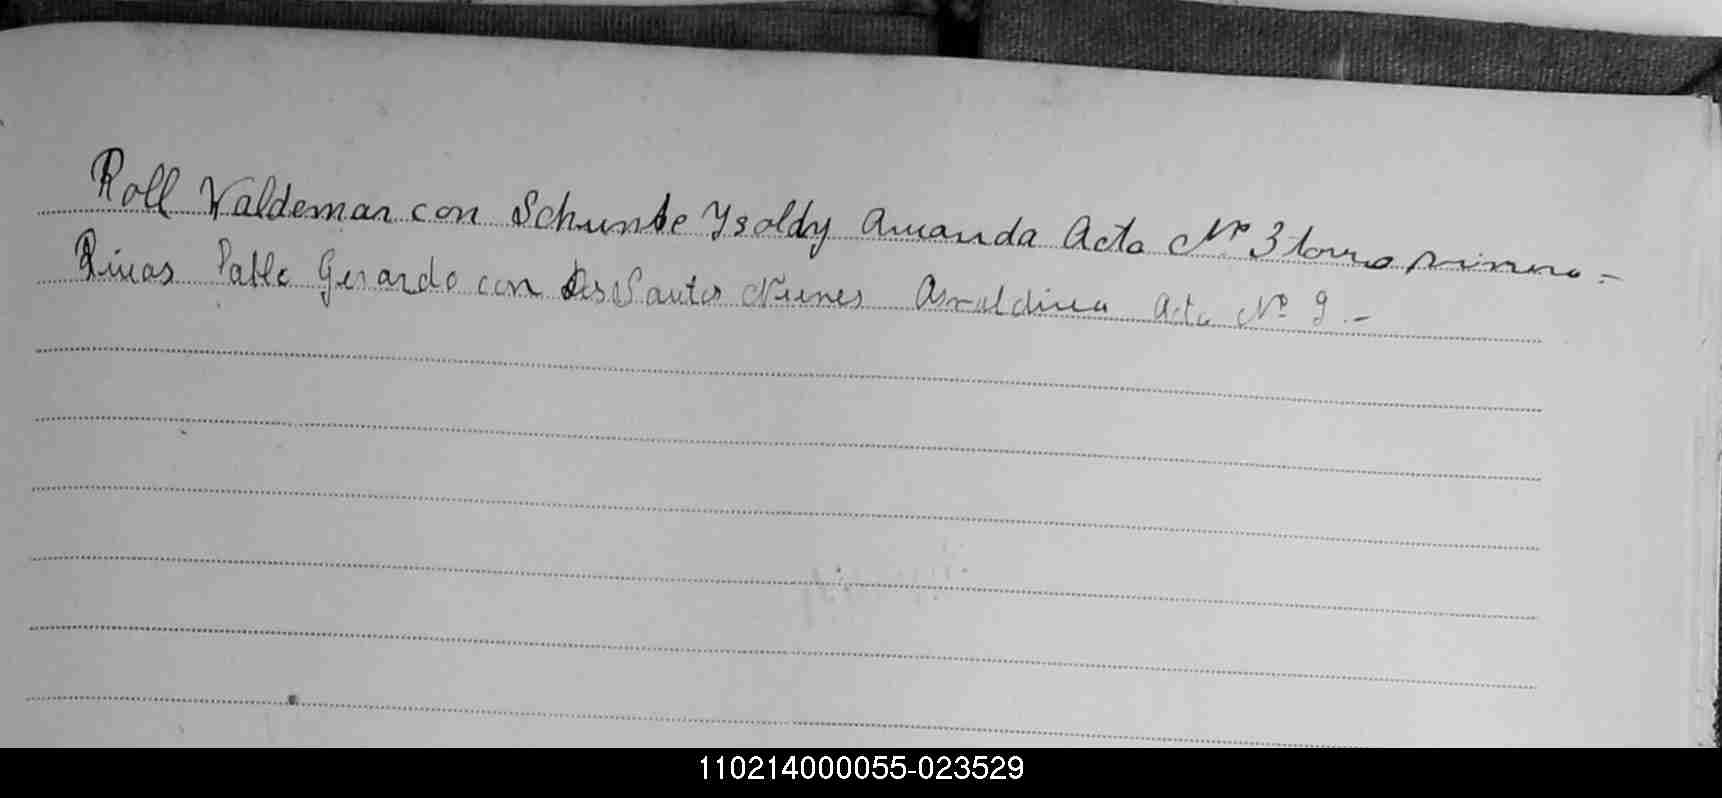 Roll Valdemar con Schunke Ysoldy Amanda Acta Nº 3 tomo primero =
Rivas Pablo Gerardo con Dos Santos Nunes Acta Nº 9.-
110214000055-023529